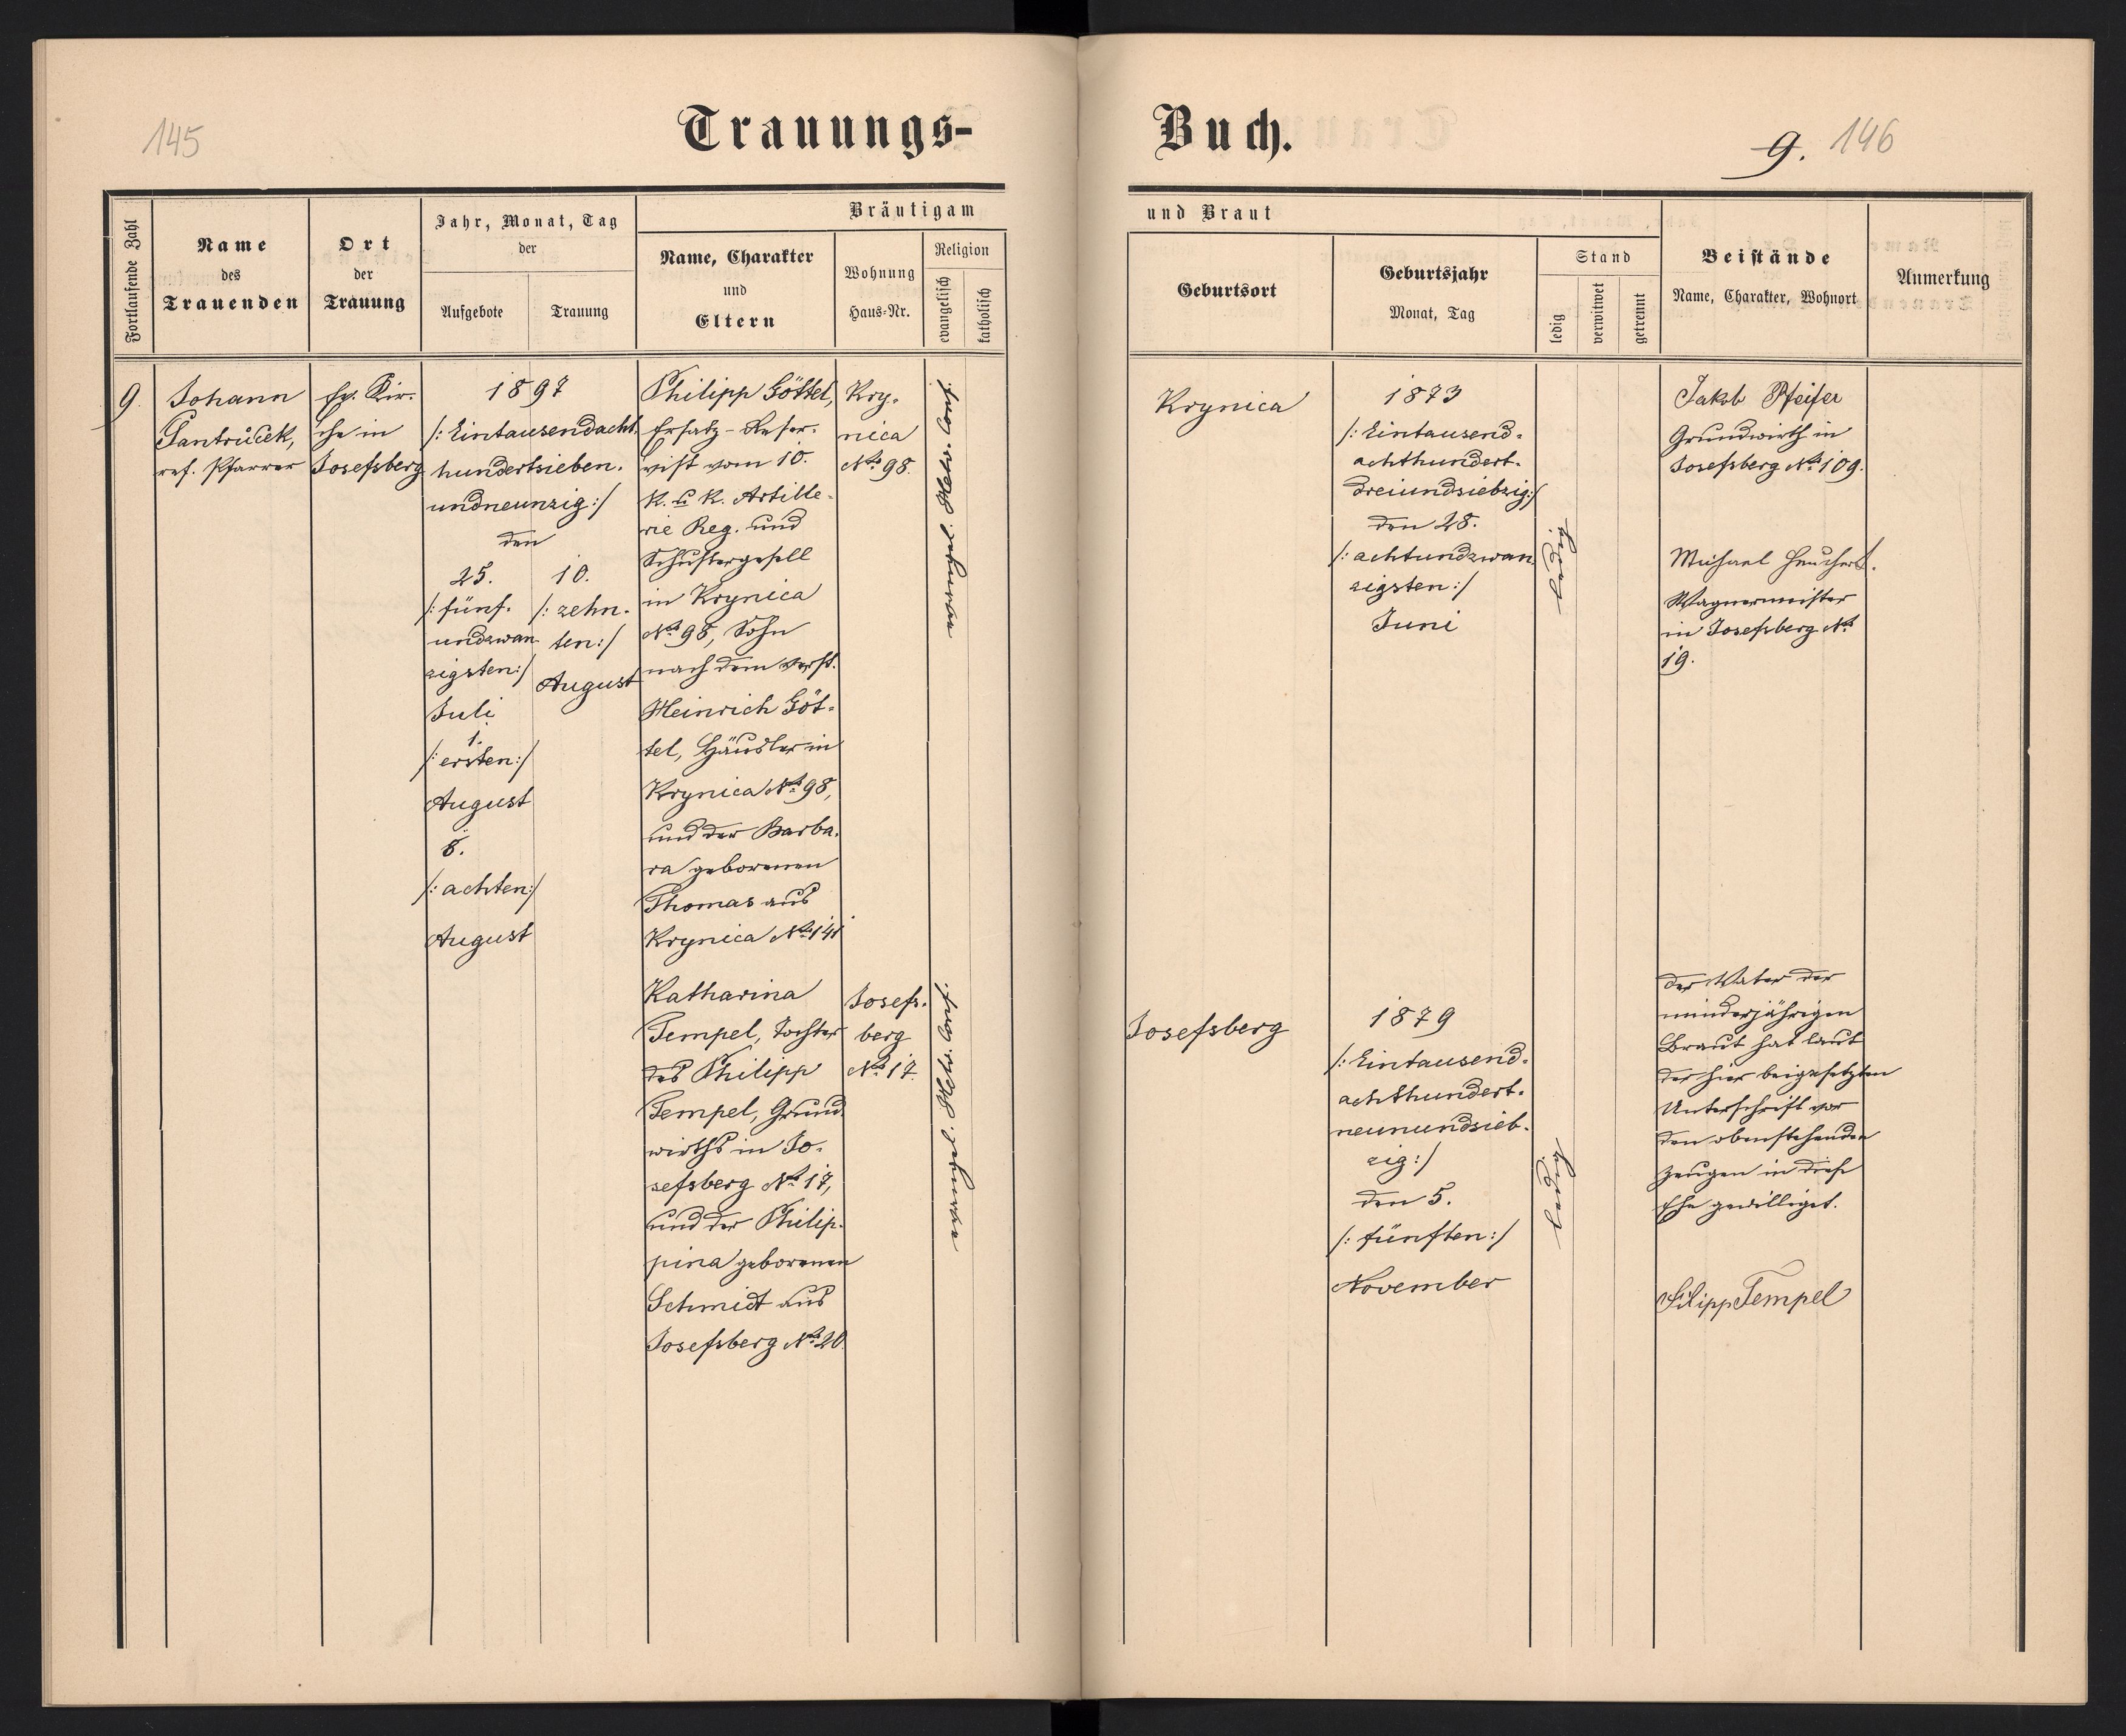 145
Trauungs-
Buch.
9. 146
Fortlaufende Zahl
Name
des
Trauenden
Ort
der
Trauung
Jahr, Monat, Tag
der
Aufgebote
Trauung
Bräutigam
Name, Charakter
und
Eltern
Wohnung
Haus-Nr.
Religion
evangelisch
katholisch
und Braut
Geburtsort
Geburtsjahr
Monat, Tag
Stand
ledig
verwitwet
getrennt
Beistände
Name, Charakter, Wohnort
Anmerkung
9.
Johann
Jantruček,
ref. Pfarrer
Ev. Kir-
che in
Josefsberg
1897
/: Eintausendacht-
hundertsieben-
undneunzig :/
den
25.
/: fünf-
undzwan-
zigsten :/
Juli
1.
/: ersten :/
August
8.
/: achten :/
August
10.
/: zehn-
ten :/
August
Philipp Göttel,
Ersatz-Reser-
vist vom 10.
K. u. K. Artille-
rie Reg. und
Schustergesell
in Krynica
No 98, Sohn
nach dem verst.
Heinrich Göt-
tel, Häusler in
Krynica No 98,
und der Barba-
ra geborenen
Thomas aus
Krynica No 141
Kry-
nica
No 98.
evangel. Helv. Conf.
Krynica
1873
/: Eintausend-
achthundert-
dreiundsiebzig :/
den 28.
/: achtundzwan-
zigsten :/
Juni
ledig
Jakob Pfeifer
Grundwirth in
Josefsberg No 109.
Michael Heuchert.
Wagnermeister
in Josefsberg No
19.
Katharina
Tempel, Tochter
des Philipp
Tempel, Grund-
wirths in Jo-
sefsberg No 17,
und der Philip-
pina geborenen
Schmidt aus
Josefsberg No 20.
Josefs-
berg
No 17.
evangel. Helv. Conf.
Josefsberg
1879
/: Eintausend-
achthundert-
neunundsieb-
zig :/
den 5.
/: fünften :/
November
ledig
Der Vater der
minderjährigen
Braut hat laut
der hier beigesetzten
Unterschrift vor
den obenstehenden
Zeugen in diese
Ehe gewilliget.
Filipp Tempel